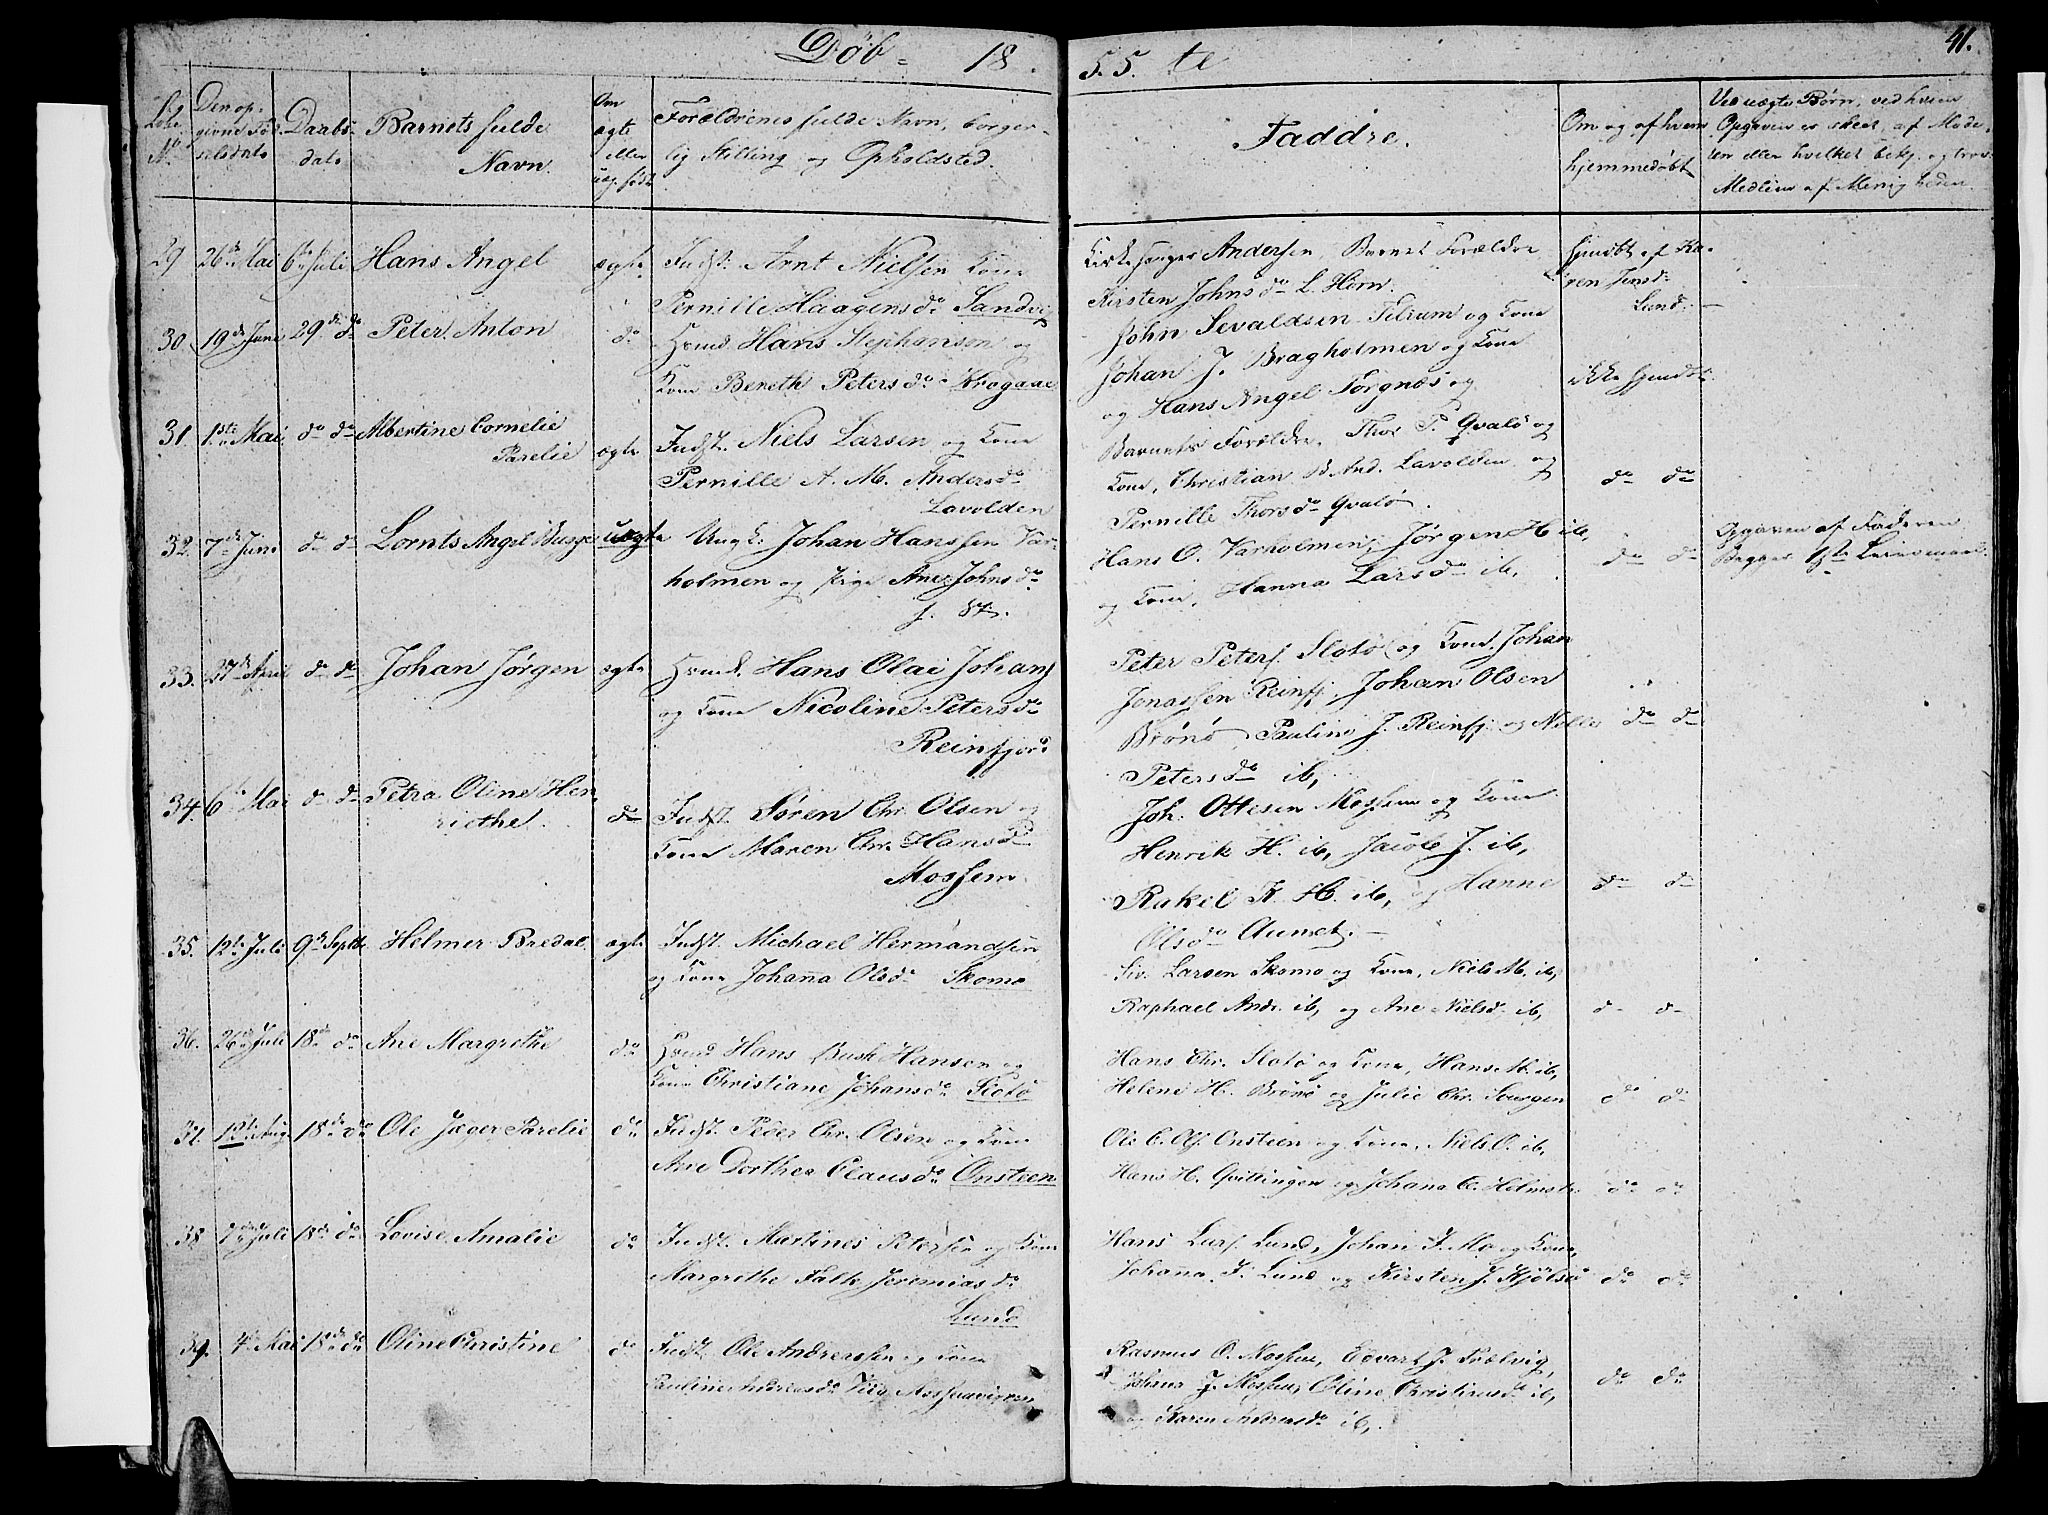 Döb - 18 55 te 41.
Løbe No. Den opgivne Fødselsdato Daabsdato Barnets fulde Navn. Om ægte eller uæg. født Forældrenes fulde Navn, borgerlig Stilling og Opholdsted. Faddre. Om og af hvem hjemmedøbt Ved uægte Børn, ved hvem Opgaven er skeet, af Moderen eller hvilket bekj. og trov. Medlem af Menigheden
29 26de Mai 6te Juli Hans Angel ægte Indst. Arnt Nielsen Kone
Pernille Haagensdr Sandvig
Kirkesanger Andersen, Barnets Forældre
Kirsten Johnsdr L. Horn.
hjmdbt af Karen Jensdr Lund. —
30. 19de Juni 29de do Peter Anton do Hmd. Hans Stephansen og
Kone Bereth Petersdr Krogaae
John Sevaldsen Tilrum og Kone
Johan J. Bragholmen og Kone
og Hans Angel Torgnæs og
ikke hjmdbt.
31. 1ste Mai do do Albertine Cornelie
Parelie ægte Indst. Niels Larsen og Kone
Pernille A. M. Andersdr
Lavolden
Barnets Forældre, Thor P. Qvalö og
Kone, Christian B. And. Lavolden og
Pernille Thorsdr Qvalö.
do do
32. 7de Juni do do Lornts Angel Busge uægte Ungk. Johan Hanssen Varholmen og Pige Ane Johnsdr
Hans O. Varholmen, Jørgen H ib,
og Kone, Hanna Larsdr ib,
do do
Opgaven af Faderen
Begges 1ste Leiermaal.
33. 27de April do do Johan Jørgen ægte Hmd. Hans Olai Johans
og Kone Nicoline Petersdr
Reinfjord
Peter Peters. Slotö og Kone, Johan
Jonassen Reinfj, Johan Olsen
Brönö, Pauline J. Reinfj. og Nille
Petersdr ib,
do do
34. 6te Mai do do Petra Oline Hen
riethe. do Indst. Sören Chr. Olsen og
Kone Maren Chr. Hansdr
Mossem.
Joh. Ottesen Mossem og Kone
Henrik H. ib, Jacob J. ib,
Rakel K. H. ib, og Hanne
Olsdr Aunet. —
do do
35. 12te Juli 9de Septbr Helmer Bredal. ægte Indst. Michael Hermandsen
og Kone Johanna Olsdr Skomo
Siv. Larsen Skomo og Kone, Niels M. ib,
Raphael Andr. ib, og Ane Nielsdr ib,
do do
36. 26de Juli 18de do Ane Margrethe do Hmd Hans Bush Hansen og
Kone Christiane Johansdr Slotö
Hans Chr. Slotö og Kone, Hans M. ib,
Helene H. Brönö og Julie Chr. Sourgen
do do
37. 1ste Aug. 18de do Ole Jæger Parelie do Indst. Peder Chr. Olsen og Kone
Ane Dorthea Clausdr Onsteen
Ole C. Ols. Onstien og Kone, Niels O. ib,
Hans H. Qvittingen og Johana C. Helmstr.
do do
38. 7de Juli 18de do Lovise Amalie do Indst. Martines Petersen og Kone
Margrethe Falk Jeremiasdr
Lund
Hans Lars. Lund, Johan J. Mo og Kone,
Johanna J. Lund og Kirsten J. Hjölsö
do do
39. 4de Mai 18de do Oline Christine do Indst. Ole Andreassen og Kone
Pauline Andreasdr
Rasmus O. Mossem, Edvart J. Trælvig,
Johan J. Mossem, Oline Christiansdr ib,
og Karen Andreasdr ib,.
do do